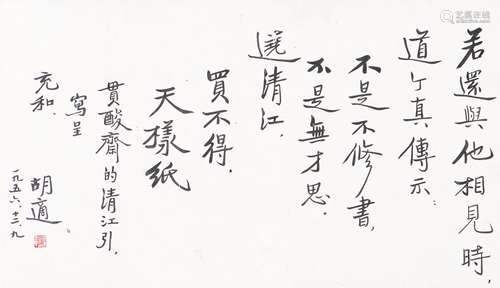 若還與他相見時,
道个真傳示:
不是不修書,
不是無才思.
遶清江,
買不得.
天樣紙
貫酸齋的清江引,
寫呈
充和.
胡適
一九五六.十二.九
艺狐在线
artfoxlive.com